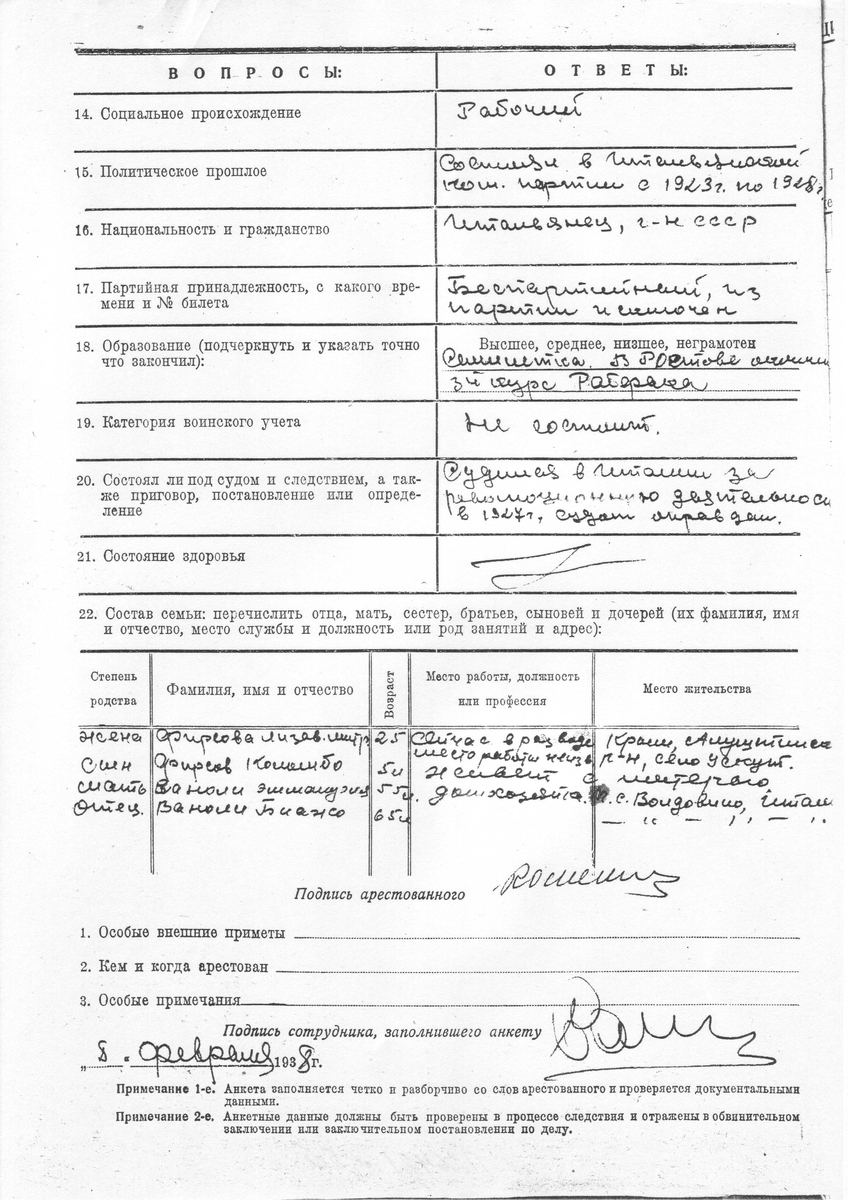 ВОПРОСЫ:
ОТВЕТЫ:
14. Социальное происхождение
Рабочий
15. Политическое прошлое
Состоял в Итальянской
ком. партии с 1923г. по 1928г.
16. Национальность и гражданство
Итальянец, г-н СССР
17. Партийная принадлежность, с какого вре-
мени и № билета
Беспартийный, из
партии исключен
18. Образование (подчеркнуть и указать точно
что закончил):
Высшее, среднее, низшее, неграмотен
Семилетка. В Ростове окончил
3й курс Рабфака
19. Категория воинского учета
Не состоит.
20. Состоял ли под судом и следствием, а так-
же приговор, постановление или опреде-
ление
Судился в Италии за
революционную деятельнос
в 1927г, судом оправдан.
21. Состояние здоровья
22. Состав семьи: перечислить отца, мать, сестер, братьев, сыновей и дочерей (их фамилия, имя
и отчество, место службы и должность или род занятий и адрес):
Степень
родства
Фамилия, имя и отчество
Возраст
Место работы, должность
или профессия
Место жительства
Жена Фирсова Лизав. 25 Сейчас в разводе Крым, Алуштинск
место работы неизв. р-н, село Ускут.
Сын Фирсов Коломбо 5л Живет с матерью
Мать Ваноли 55л. домохозяйка. с. Вальдовино, Итал
Отец. Ваноли Биажо 65л — " — " — "
Подпись арестованного
1. Особые внешние приметы
2. Кем и когда арестован
3. Особые примечания
Подпись сотрудника, заполнившего анкету
„8" февраля 1938г.
Примечание 1-е. Анкета заполняется четко и разборчиво со слов арестованного и проверяется документальными
данными.
Примечание 2-е. Анкетные данные должны быть проверены в процессе следствия и отражены в обвинительном
заключении или заключительном постановлении по делу.